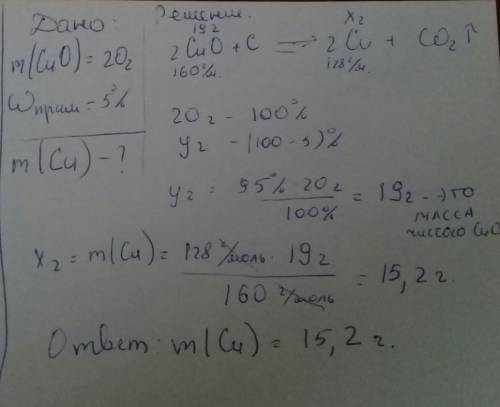 Дано:
m(CuO) = 20г
ωприм = 5%
m(Cu) - ?
Решение:
19г                    x г
2CuO + C ⟹ 2Cu + CO2↑
160г/м.          128г/м.
20г - 100%
yг - (100-5)%
yг = 95% · 20г / 100% = 19г - это
масса
чистого CuO
xг = m(Cu) = 128 г/моль · 19г / 160 г/моль = 15,2 г.
Ответ: m(Cu) = 15,2 г.